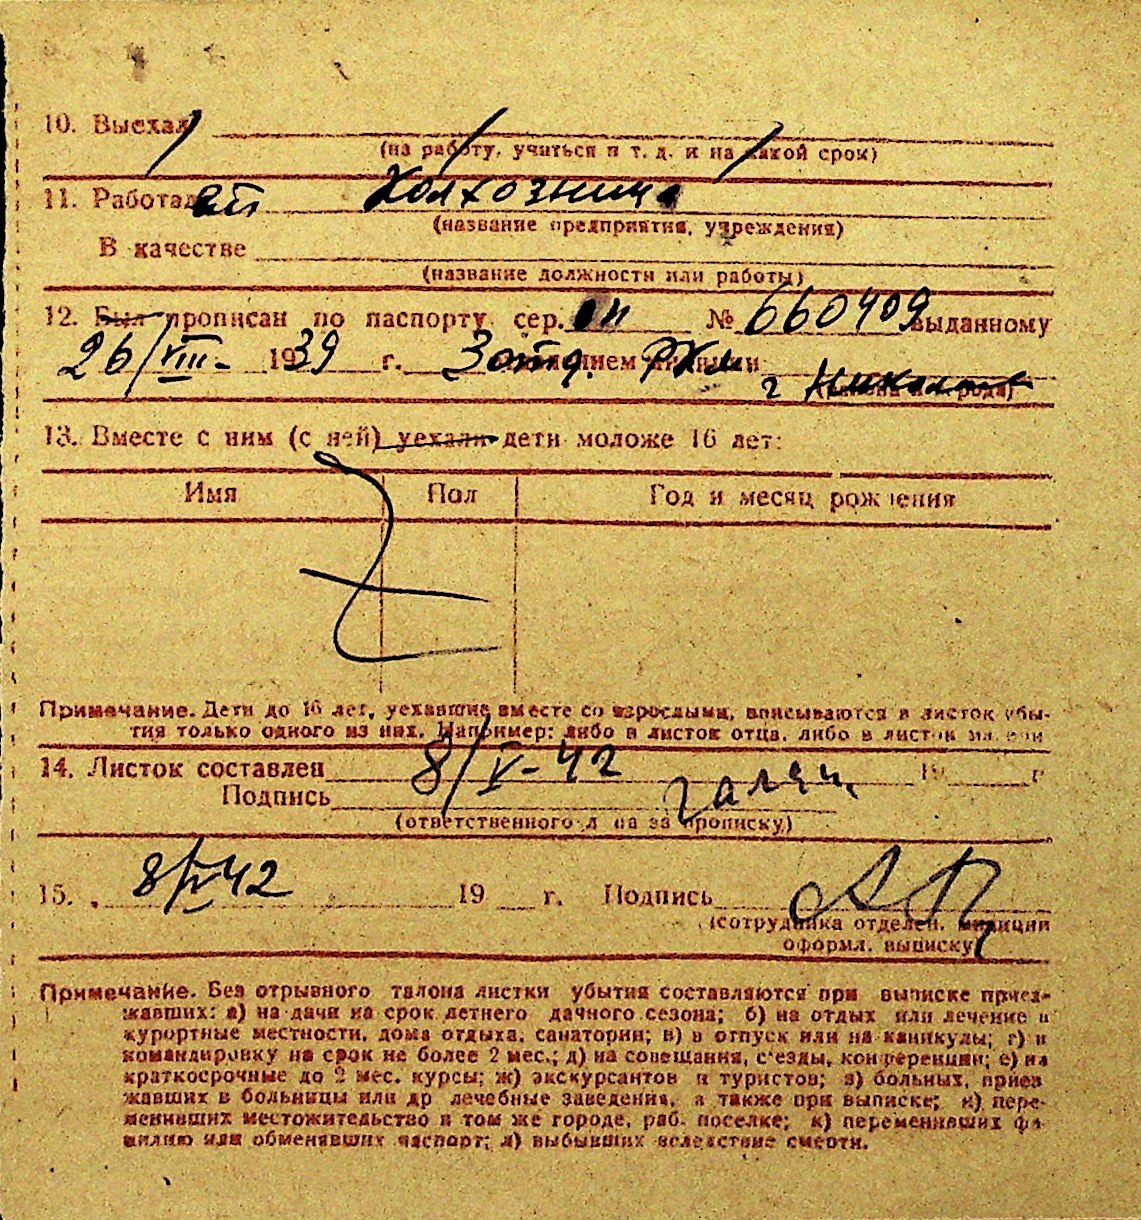 10. Выехал
(на работу, учиться и т. д. и на какой срок)
11. Работает Колхозница
(название предприятия, учреждения)
В качестве
(название должности или работы)
12. Был прописан по паспорту сер. № 660409 выданному
26/VIII- 1939 г. 3 отд. РКМ
г Николаев
13. Вместе с ним (с ней) уехали дети моложе 16 лет:
Имя Пол Год и месяц рождения
Примечание. Дети до 16 лет, уехавшие вместе со взрослыми, вписываются в листок убы-
тия только одного из них. Например: либо в листок отца, либо в листок матери
14. Листок составлен 8/V-42 19 г
Подпись
(ответственного лица за прописку)
15. 8/V 42 19 г. Подпись
(сотрудника отделен. милиции
оформл. выписку)
Примечание. Без отрывного талона листки убытия составляются при выписке приез-
жавших: а) на дачи на срок летнего дачного сезона; б) на отдых или лечение в
курортные местности, дома отдыха, санатории; в) в отпуск или на каникулы; г) в
командировку на срок не более 2 мес.; д) на совещания, с'езды, конференции; е) на
краткосрочные до 2 мес. курсы; ж) экскурсантов и туристов; з) больных, приез
жавших в больницы или др лечебные заведения, а также при выписке; и) пере-
менивших местожительство в том же городе, раб. поселке; к) переменивших фа-
милию или обменявших паспорт; л) выбывших вследствие смерти.